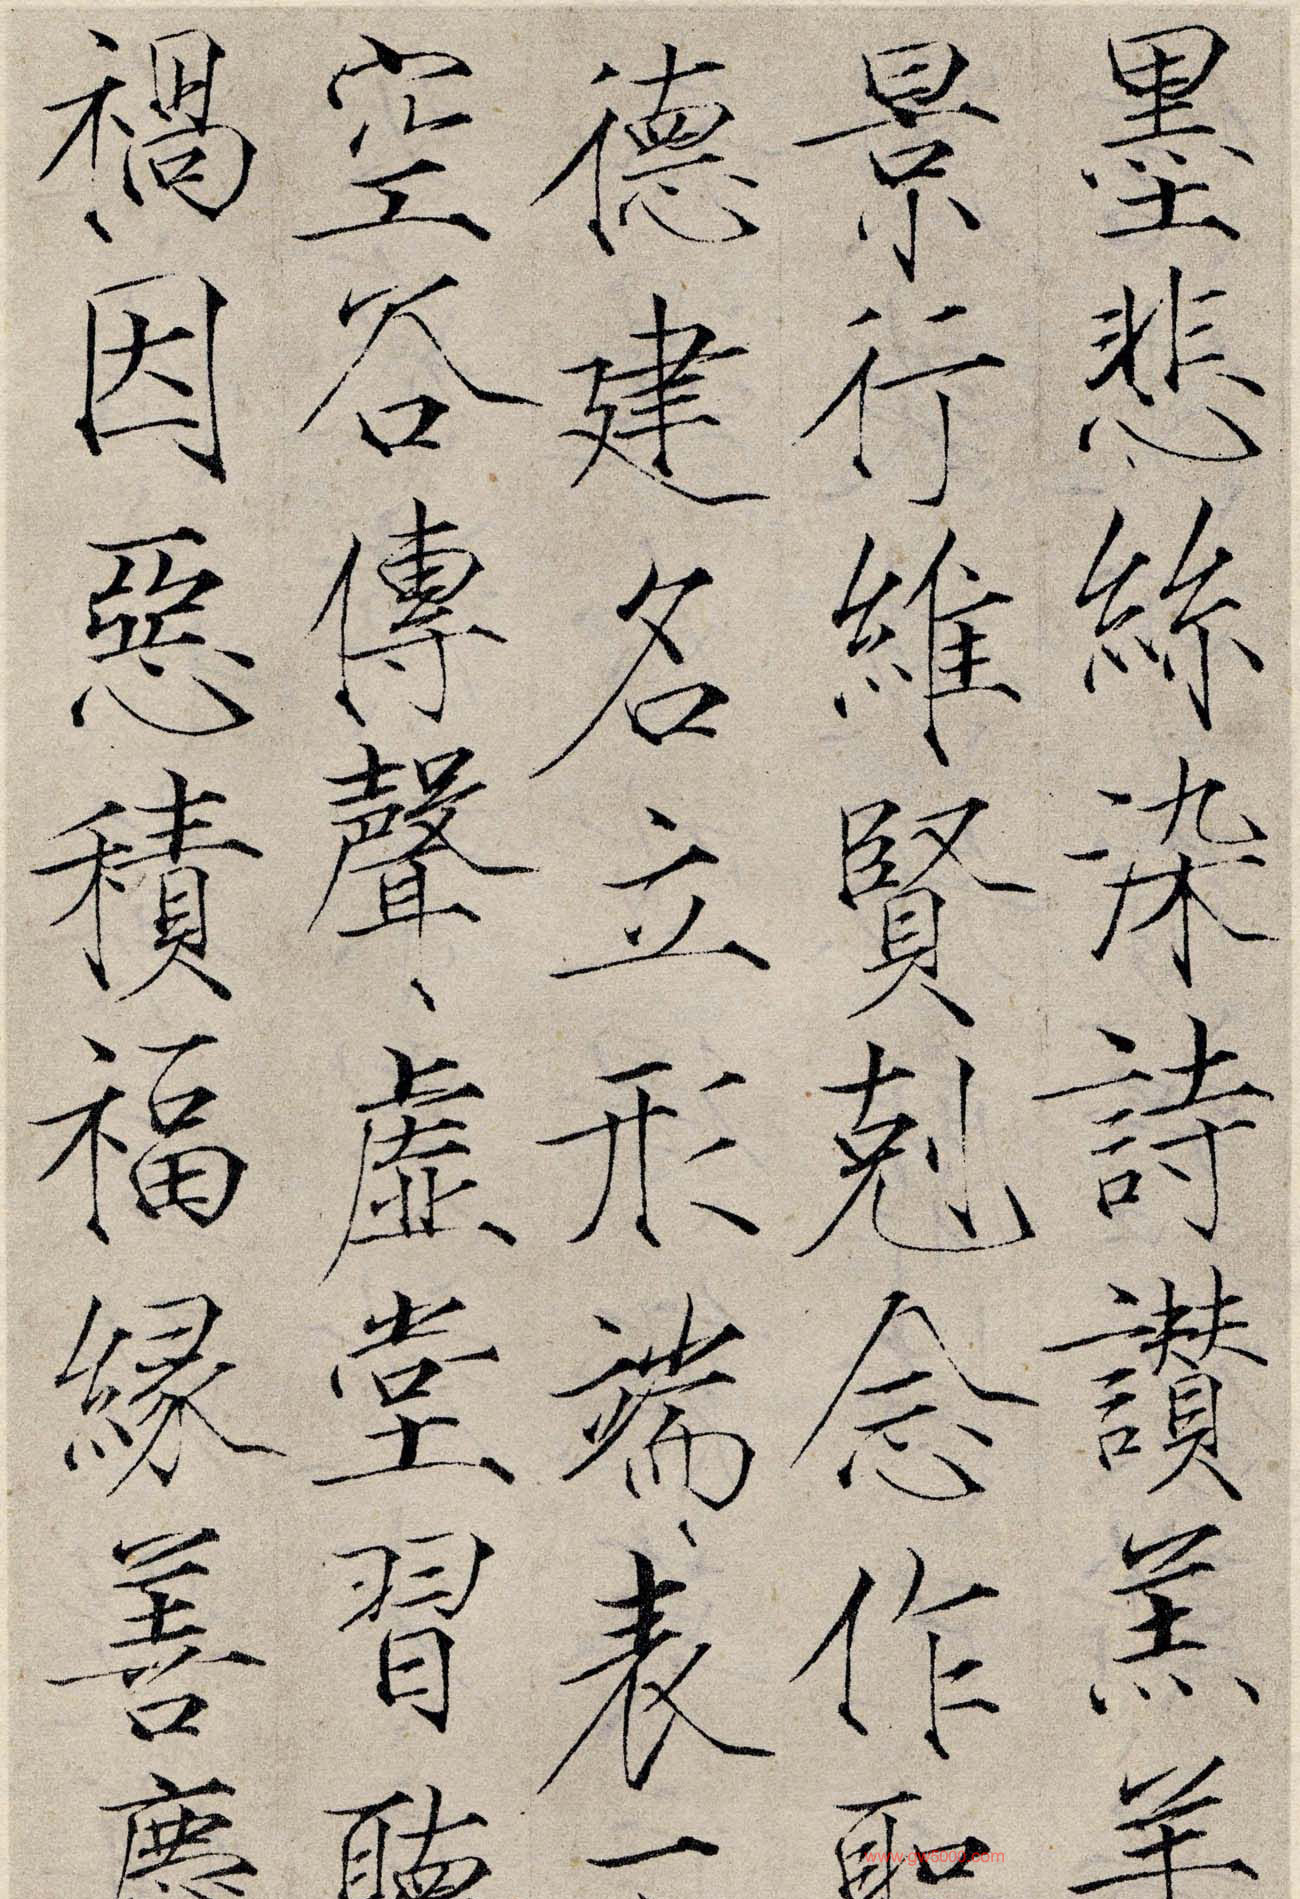 墨悲絲染詩讃羔羊
景行維賢剋念作聖
德建名立形端表
空谷傳聲虛堂習聽
禍因惡積福緣善慶
www.gw6000.com